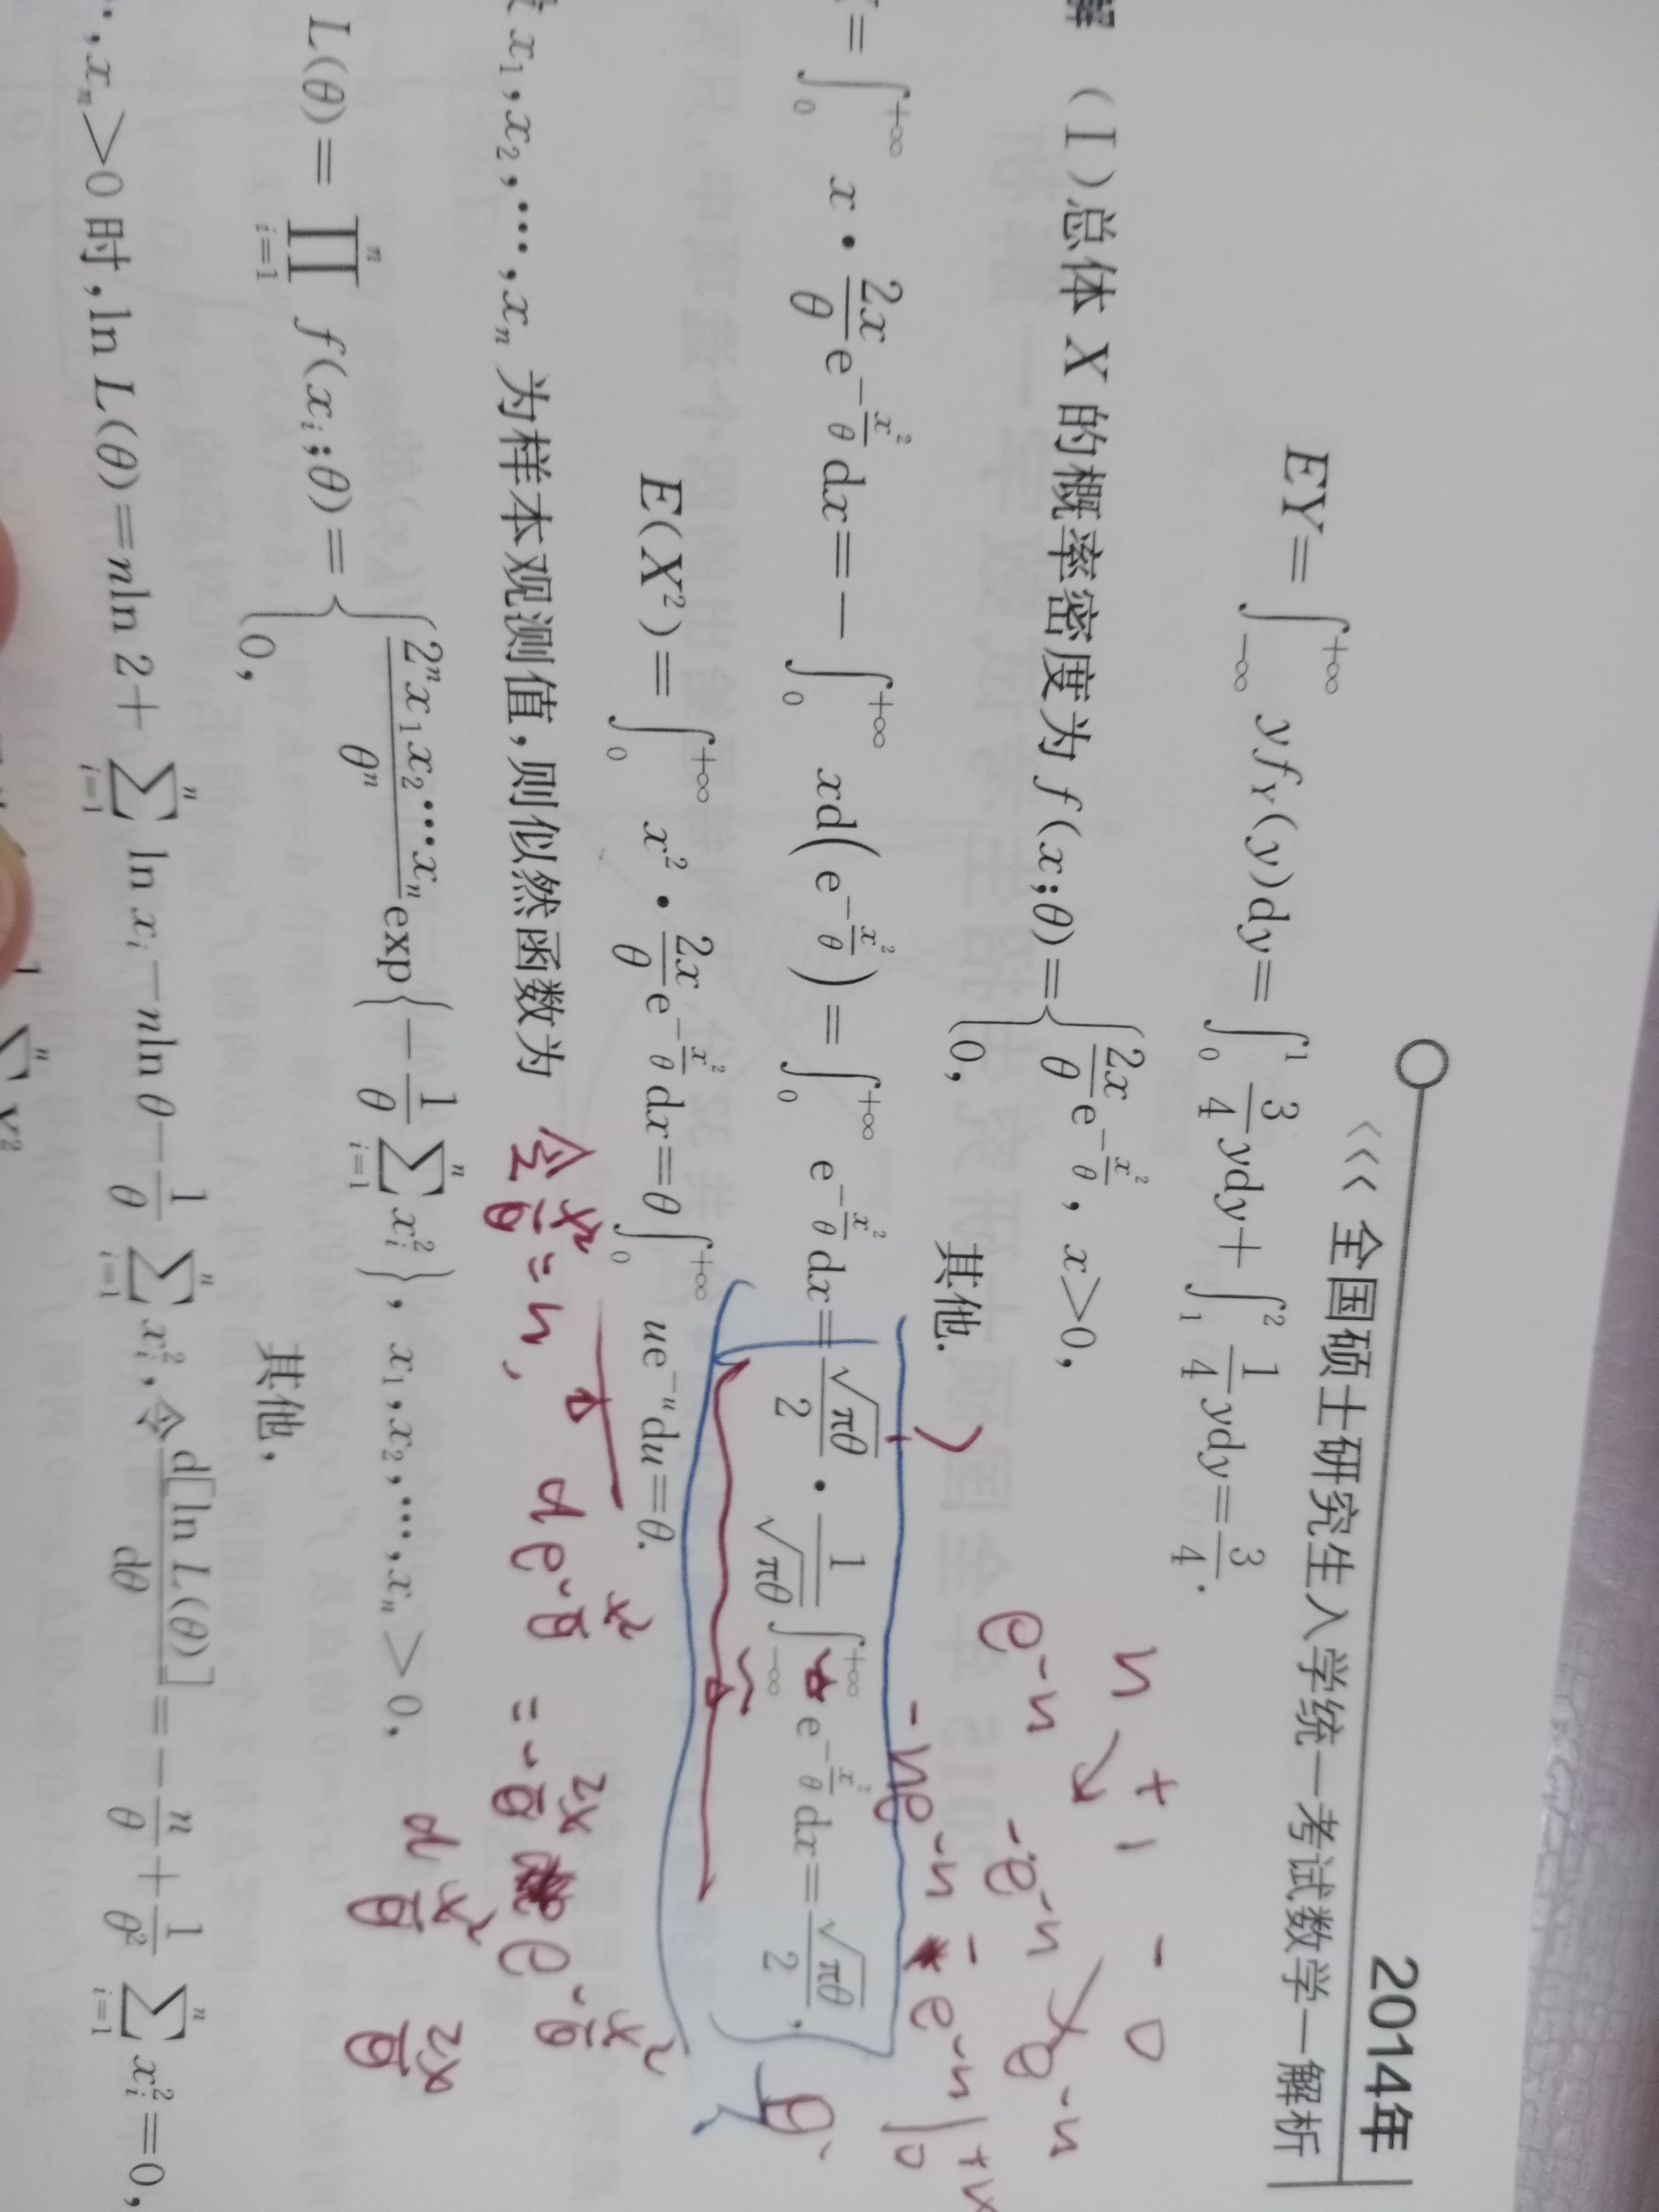 2014年
<<< 全国硕士研究生入学统一考试数学一解析
EY=∫_{-∞}^{+∞} yf_Y(y)dy=∫_0^1 3/4 ydy+∫_1^2 1/4 ydy=3/4.
解 (Ⅰ)总体 X 的概率密度为 f(x;θ)={2x/θ e^{-x²/θ}, x>0,
0, 其他.
=∫_0^{+∞} x·2x/θ e^{-x²/θ}dx=-∫_0^{+∞} xd(e^{-x²/θ})=∫_0^{+∞} e^{-x²/θ}dx=√(πθ)/2·1/√(πθ)∫_{-∞}^{+∞} e^{-x²/θ}dx=√(πθ)/2,
E(X²)=∫_0^{+∞} x²·2x/θ e^{-x²/θ}dx=θ∫_0^{+∞} ue^{-u}du=θ.
x₁,x₂,…,x_n 为样本观测值,则似然函数为
L(θ)=∏_{i=1}^n f(x_i;θ)={2ⁿx₁x₂…x_n/θⁿ exp{-1/θ ∑_{i=1}^n x_i²}, x₁,x₂,…,x_n>0,
0, 其他,
,x_n>0时,ln L(θ)=nln 2+∑_{i=1}^n ln x_i-nln θ-1/θ ∑_{i=1}^n x_i²,令d[ln L(θ)]/dθ=-n/θ+1/θ² ∑_{i=1}^n x_i²=0,
u + 1 - 0
e^{-u} -e^{-u} e^{-u}
-ue^{-u} - e^{-u}|_0^{+∞}
θ.
令 x²/θ=u,
de^{-x²/θ} = -2x/θ e^{-x²/θ}
d x²/θ 2x/θ